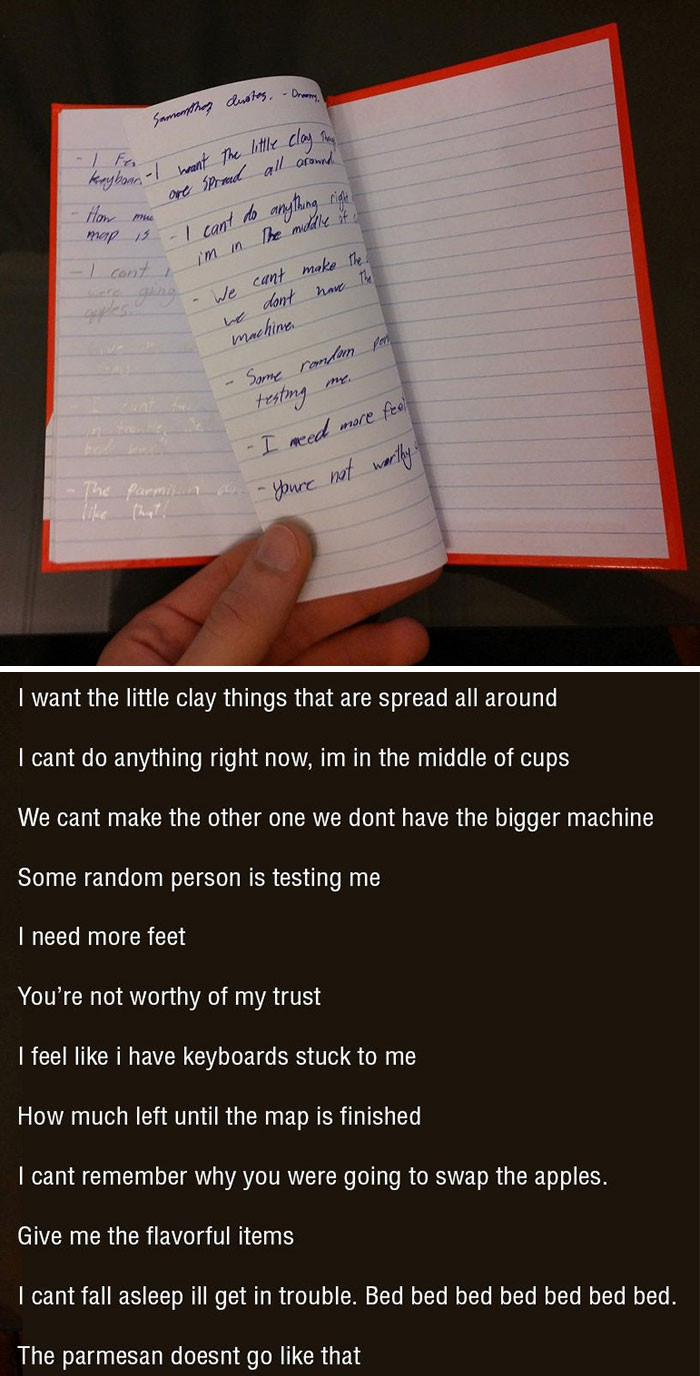 Samanthas Quotes. - Dreams.
- I want the little clay
are spread all around
- I cant do anything right
im in the middle of
- We cant make the
we dont have the
machine.
- Some random per
testing me.
- I need more feet
- Youre not worthy
- I
keyboar
- How muc
map is
- I cant
were going
apples.
in trouble.
bed
- The Parmisan
like that!
I want the little clay things that are spread all around
I cant do anything right now, im in the middle of cups
We cant make the other one we dont have the bigger machine
Some random person is testing me
I need more feet
You’re not worthy of my trust
I feel like i have keyboards stuck to me
How much left until the map is finished
I cant remember why you were going to swap the apples.
Give me the flavorful items
I cant fall asleep ill get in trouble. Bed bed bed bed bed bed bed.
The parmesan doesnt go like that